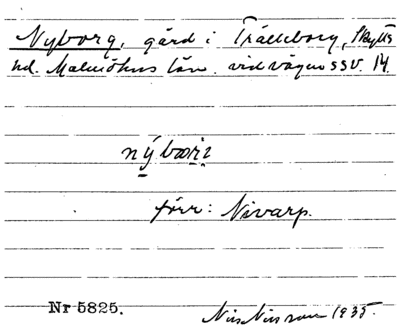 Nyborg, gård i Trälleborg, Skytts
hd. Malmöhus län. vid vägen SSV. 14.
förr: Nivarp.
Nr 5825.
Nils Nilsson 1935.